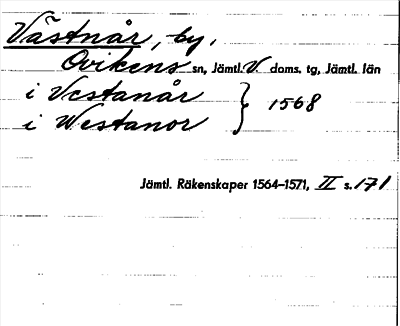 Västnår, by,
Ovikens sn, Jämtl. V. doms. tg, Jämtl. län
i Vestanår
i Westanor } 1568
Jämtl. Räkenskaper 1564–1571, II s. 171